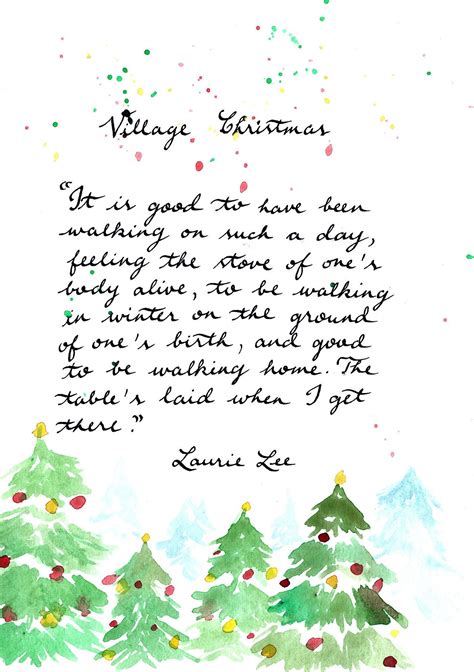 Village Christmas
"It is good to have been
walking on such a day,
feeling the stove of one's
body alive, to be walking
in winter on the ground
of one's birth, and good
to be walking home. The
table's laid when I get
there."
Laurie Lee